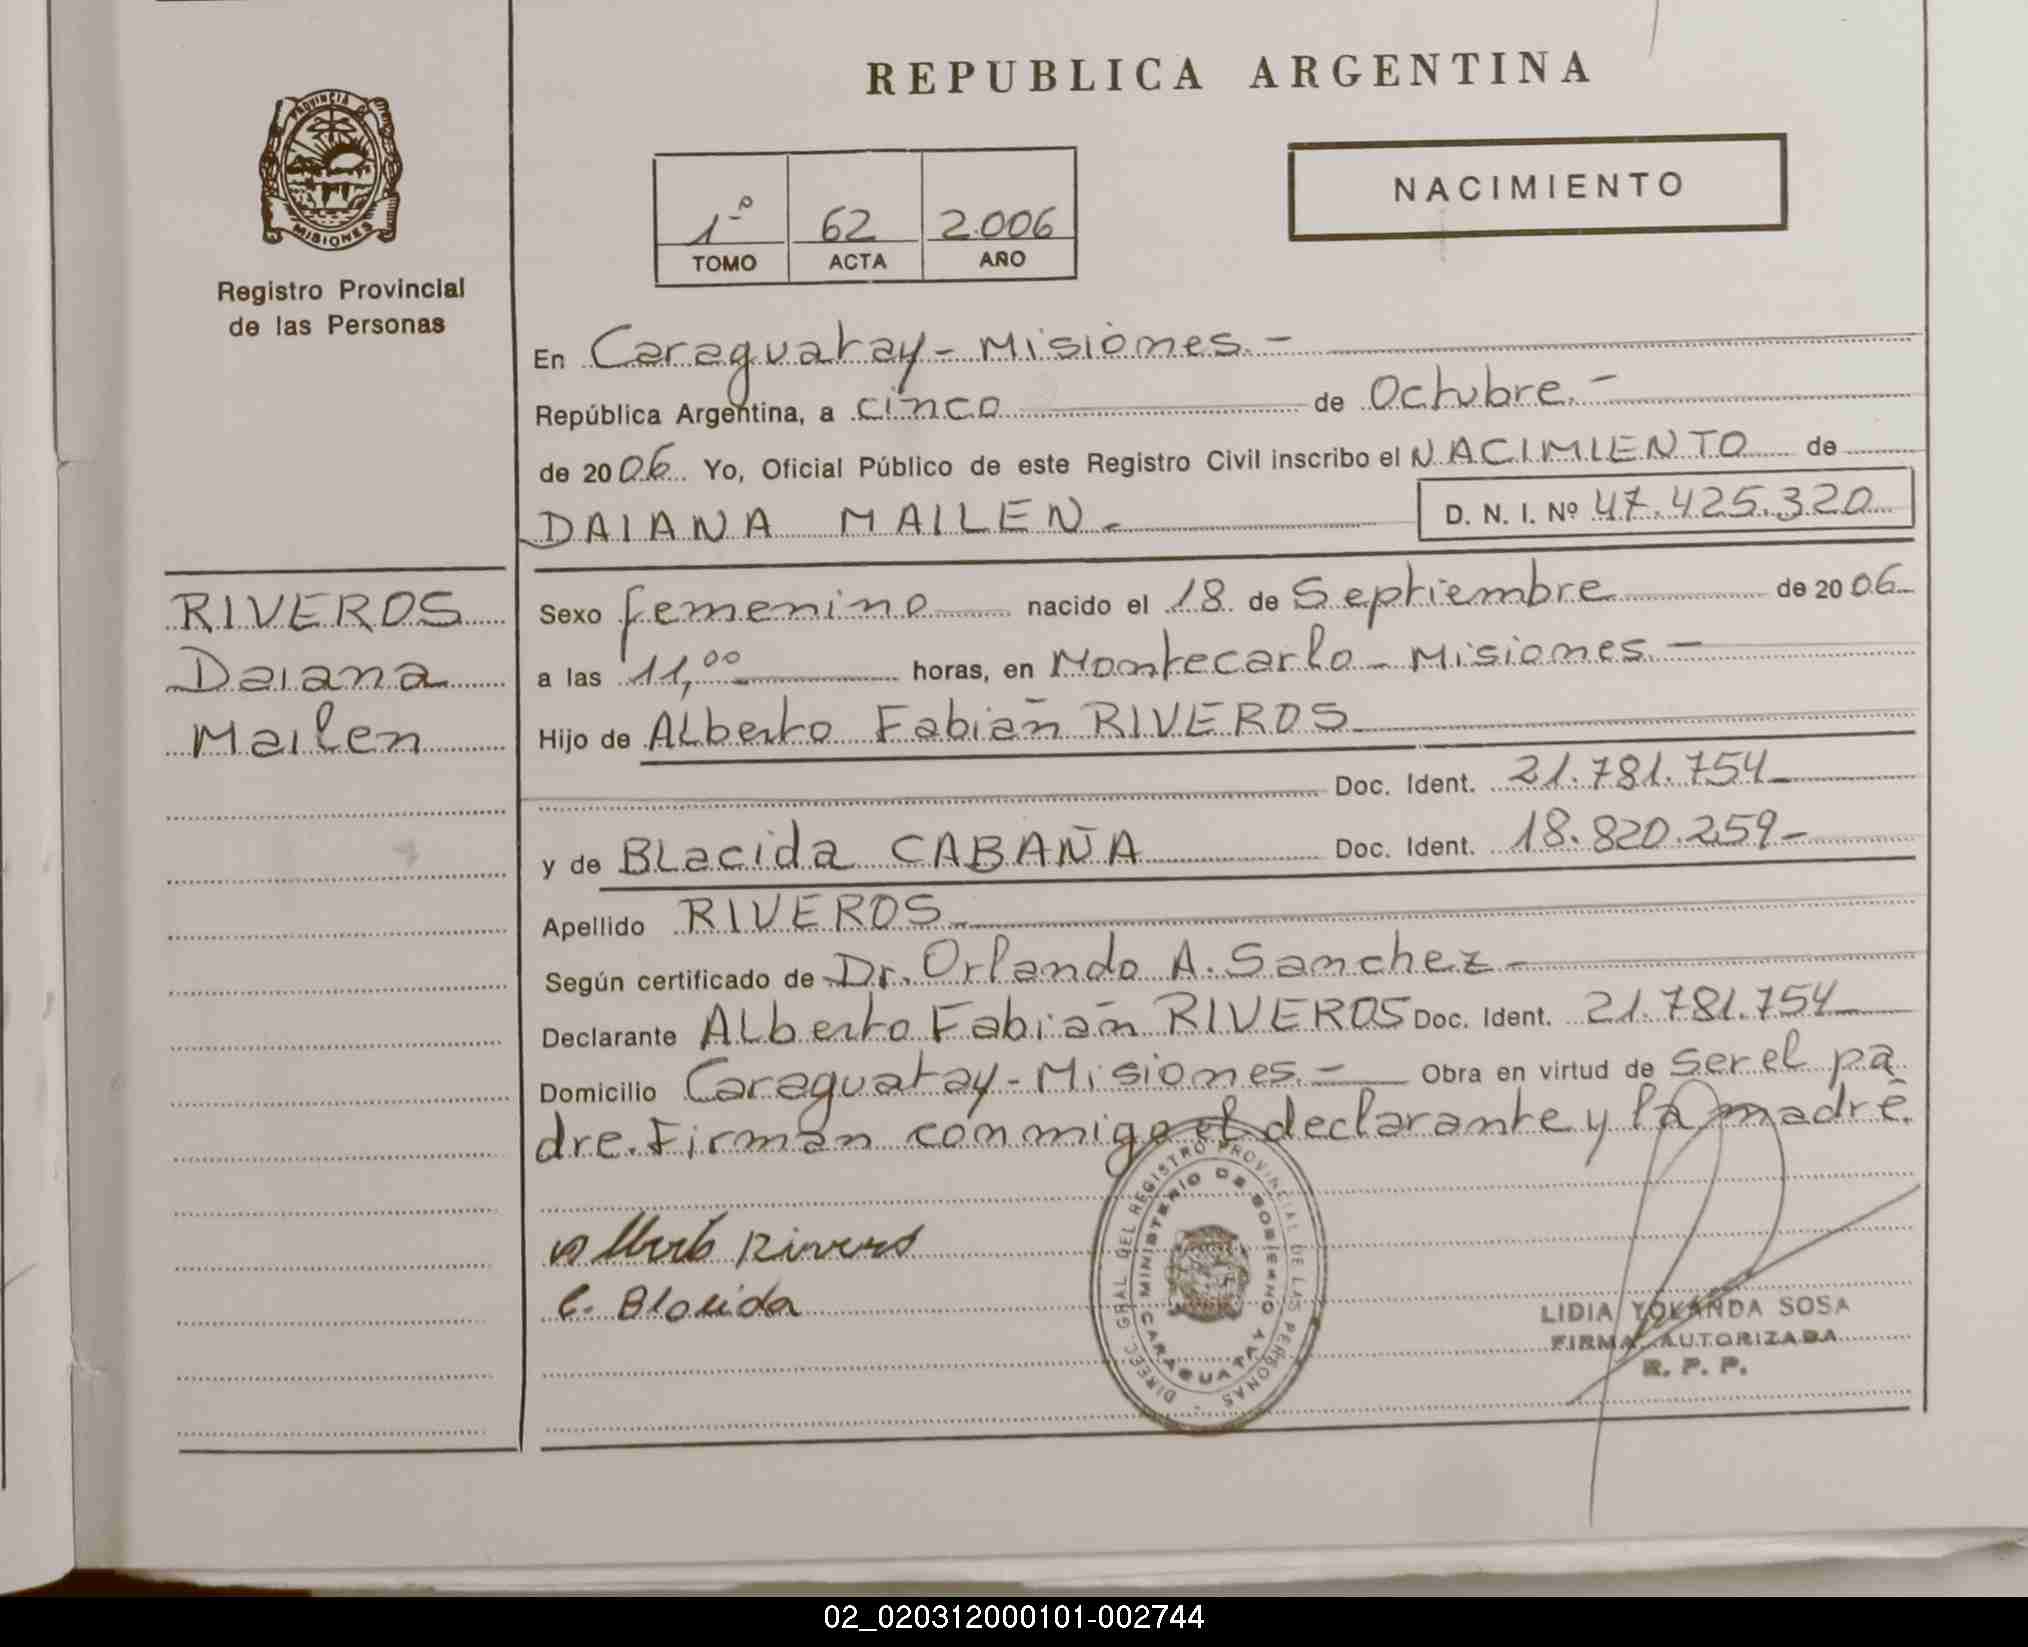 REPUBLICA ARGENTINA
PROVINCIA DE
MISIONES
Registro Provincial
de las Personas
1º 62 2.006
TOMO ACTA AÑO
NACIMIENTO
En Caraguatay - Misiones. -
República Argentina, a cinco de Octubre. -
de 2006 Yo, Oficial Público de este Registro Civil inscribo el NACIMIENTO de
DAIANA MAILEN. D. N. I. Nº 47.425.320
RIVEROS
Daiana
Mailen
Sexo femenino nacido el 18 de Septiembre de 2006
a las 11,00 horas, en Montecarlo - Misiones. -
Hijo de Alberto Fabián RIVEROS
Doc. Ident. 21.781.754
y de Blacida CABAÑA Doc. Ident. 18.820.259-
Apellido RIVEROS
Según certificado de Dr. Orlando A. Sanchez -
Declarante Alberto Fabián RIVEROS Doc. Ident. 21.781.754
Domicilio Caraguatay - Misiones. - Obra en virtud de ser el pa
dre. Firman conmigo el declarante y la madre.
Alberto Riveros
C. Blacida
DIREC. GRAL DEL REGISTRO PROVINCIAL DE LAS PERSONAS
MINISTERIO DE GOBIERNO
CARAGUATAY
LIDIA YOLANDA SOSA
FIRMA AUTORIZADA
R. P. P.
02_020312000101-002744